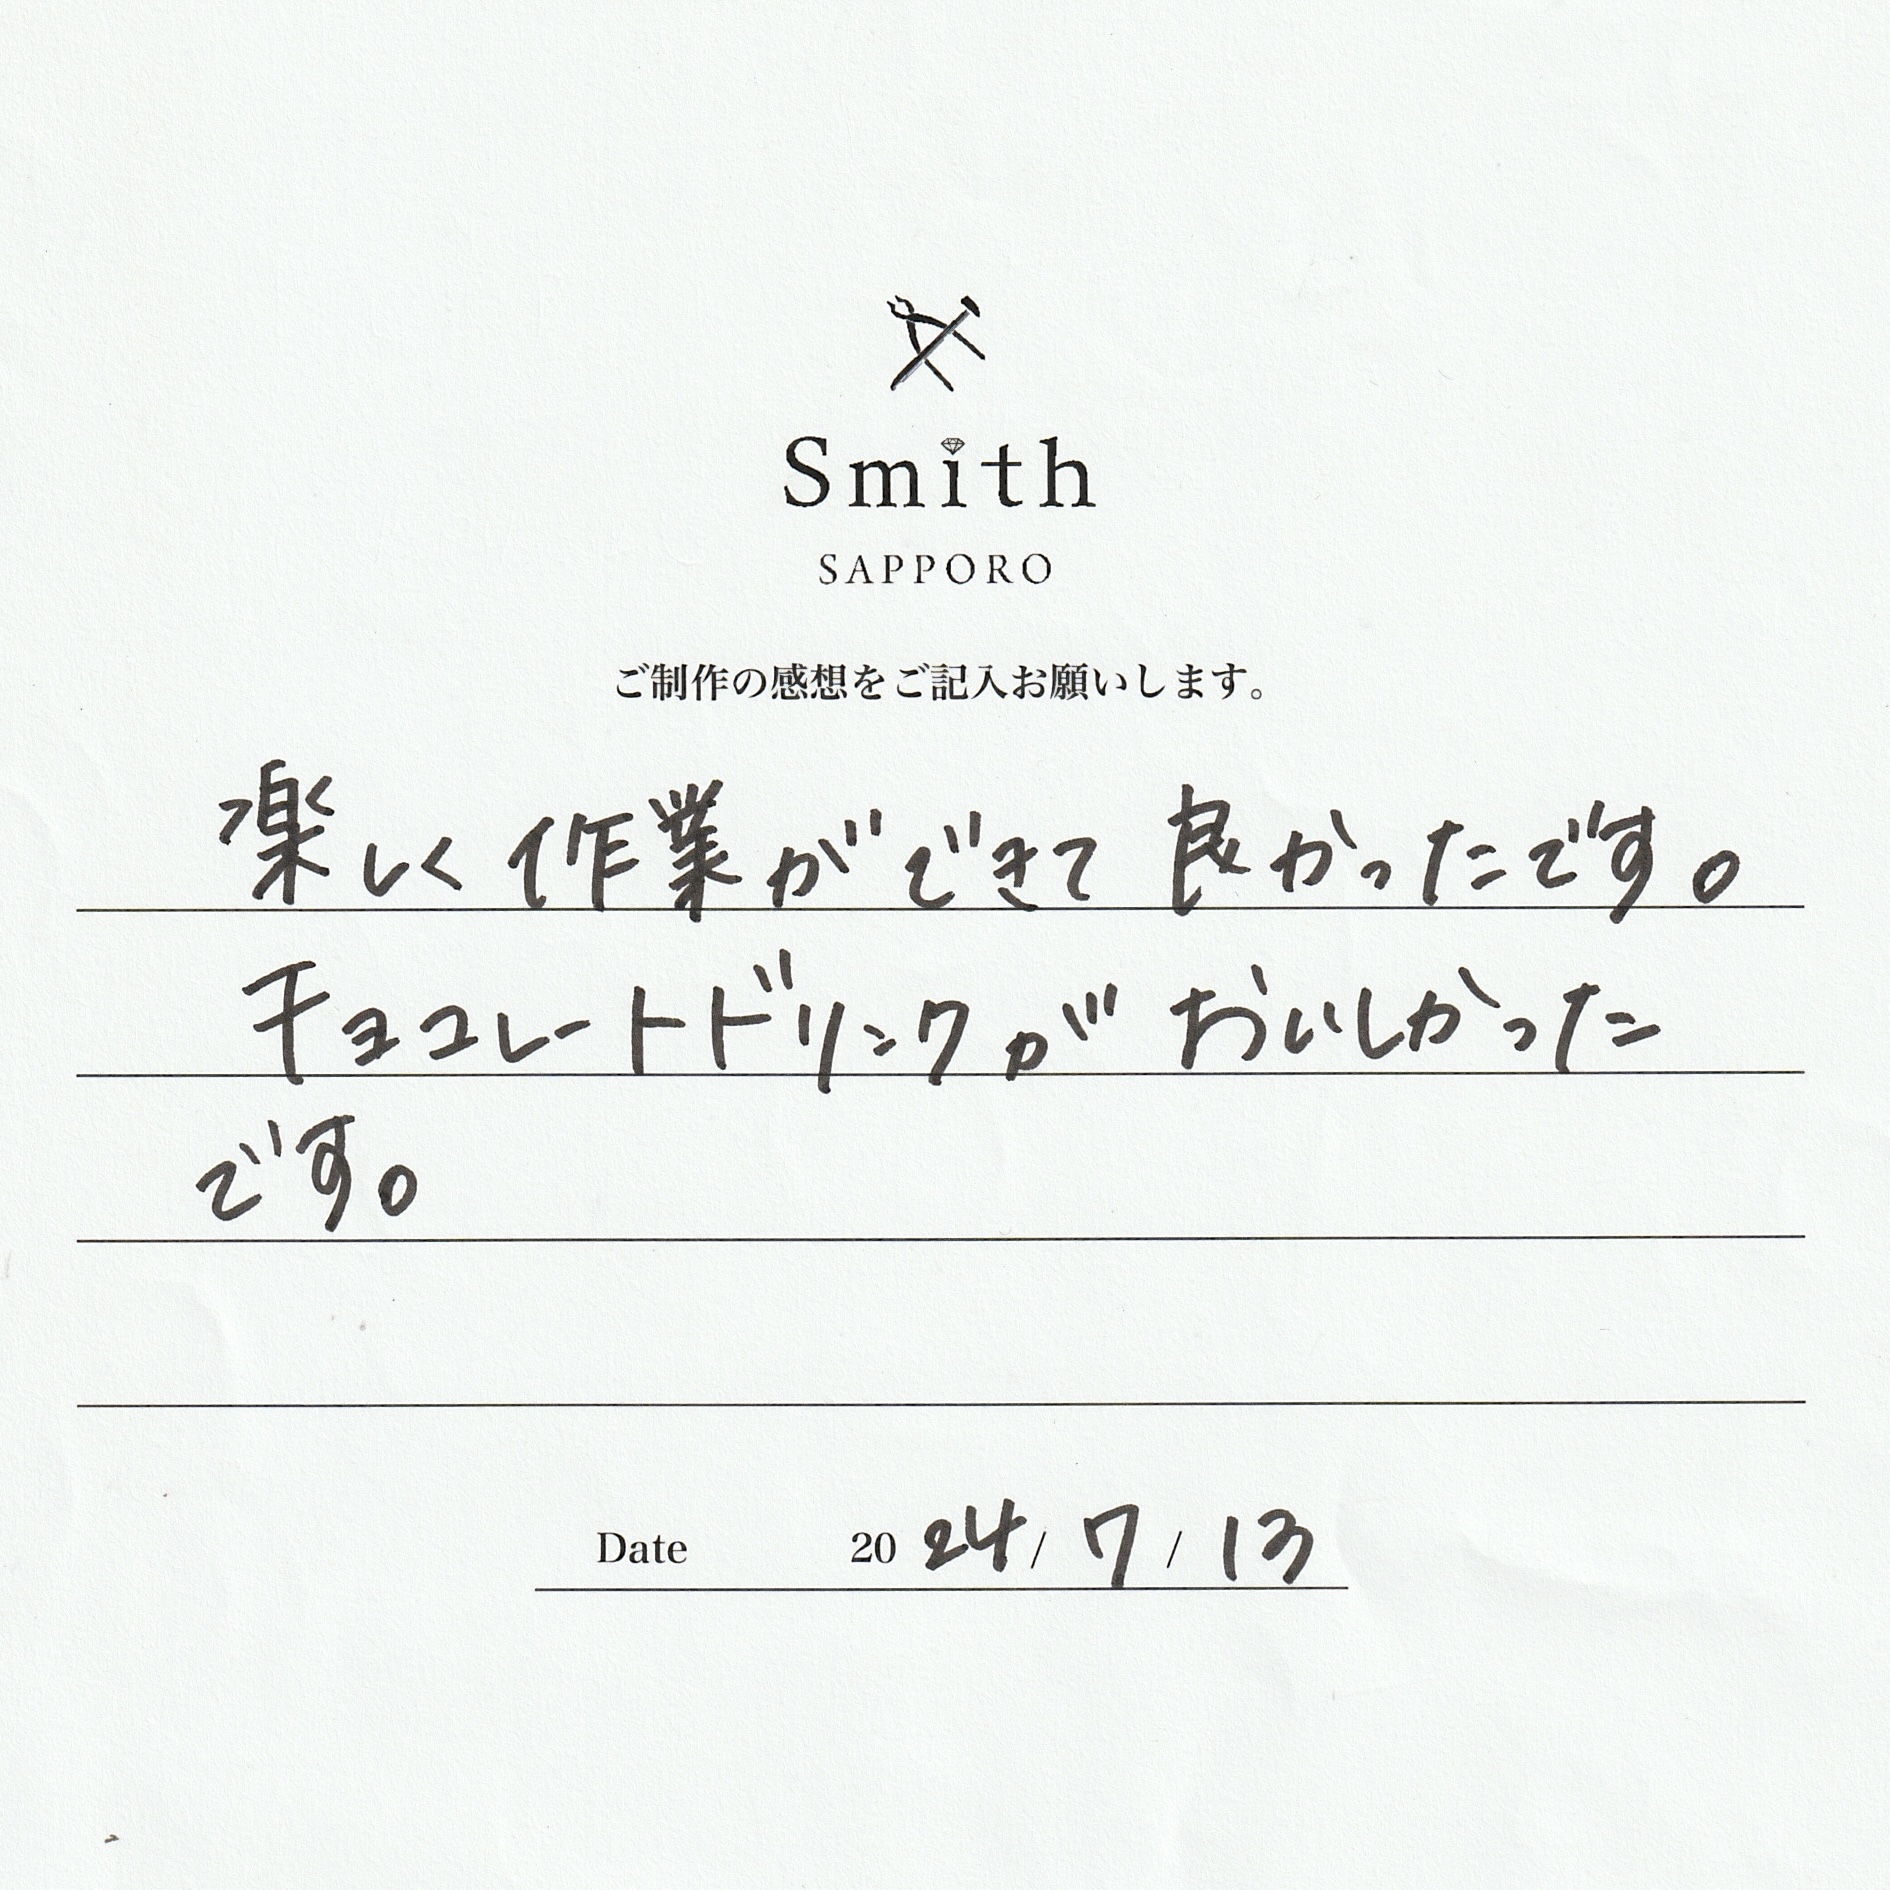 Smith
SAPPORO
ご制作の感想をご記入お願いします。
楽しく作業ができて良かったです。
チョコレートドリンクがおいしかった
です。
Date 2024/7/13